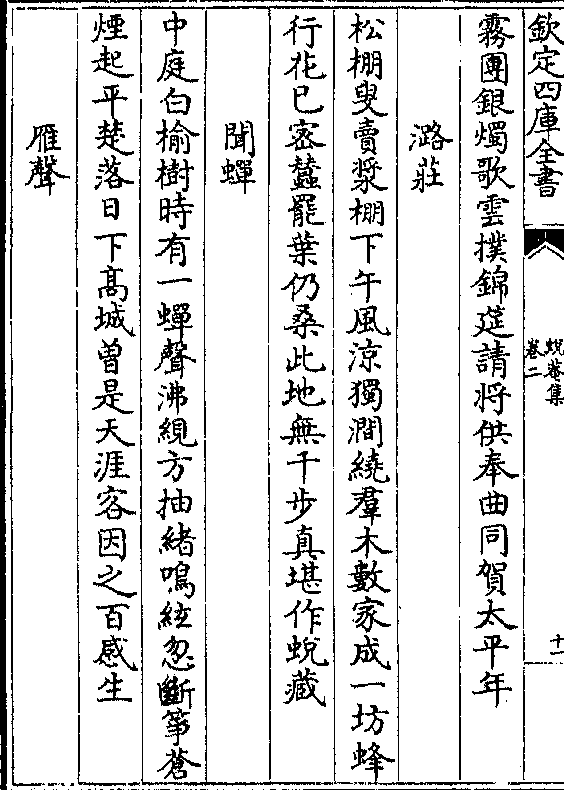 欽定四庫全書
蛻菴集
卷二
十一
霧團銀燭歌雲撲錦筵請将供奉曲同賀太平年
潞莊
松棚叟賣漿棚下午風涼獨澗繞羣木數家成一坊蜂
行花已密蠶罷葉仍桑此地無千步真堪作蛻藏
聞蟬
中庭白榆樹時有一蟬聲沸緄方抽緒鳴絃忽斷筝蒼
煙起平楚落日下髙城曽是天涯客因之百感生
雁聲